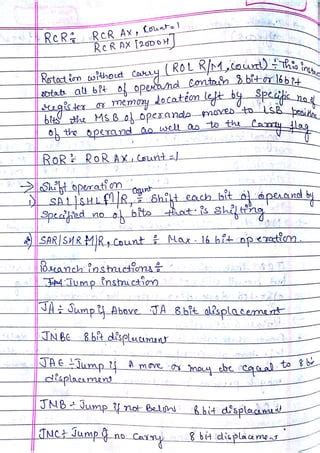 RCR : RCR AX, Count=1
RCR AX [2000H]
Rotation without carry (ROL R/M, count) ÷ This
rotate all bit of operand contain 8 bit or 16 bit
register or memory location left by specific no of
bits the M.S.B of operands moves to LSB
of the operand as well as to the Carry flag
ROR : ROR AX, count=1
→ Shift operation
1) SAL|SHL M/R, count ÷ Shift each bit of operand by
specified no of bits that is shifting
2) SAR/SHR M/R, count ÷ Max. 16 bit operation.
Branch instructions ÷
Jump instruction
JA ÷ Jump if Above JA 8bit displacement
JNBE 8bit displacement
JAE ÷ Jump if A move or may be equal to 8bit
displacement
JNB ÷ Jump if not Below 8bit displacement
JNC ÷ Jump if no carry 8bit displacement